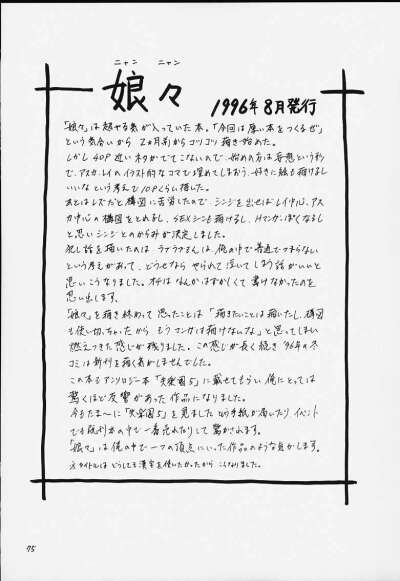 ニャン ニャン
娘々 1996年8月発行
「娘々」は超やる気が入っていた本。「今回は厚い本をつくるぜ」
という気合いから 2ヵ月前からコツコツ描き始めた。
しかし40P近いネタがでてこないので、始めの方は妄想という形
で、アスカ、レイのイラスト的なコマで埋めてしまおう、好きに絵も描けるし
いいな という考えで10Pくらい描いた。
あとはレズだと構図に苦労したので、シンジを出せばレイ中心、アス
カ中心の構図をとれるし、SEXシーンも描けるし、Hマンガっぽくなるし
と思いシンジとのからみが決定しました。
犯し話を描いたのは ラブラブさんは、俺の中で普通でつまらない
という考えがあって、どうせなら やられて泣いてしまう話がいいと
思いこうなりました。オチは なんかはずかしくて書けなかったのを
思い出します。
「娘々」を描き終わって思ったことは 「描きたいことは描いたし、構図
も使い切っちゃったから もうマンガは描けないな」と思ってしまい
燃えつきた感じが残りました。この感じが長く続き '96年の冬
コミは新刊を描く気がしませんでした。
この本もアンソロジー本「失楽園5」に載せてもらい、俺にとっては
驚くほど反響があった作品になりました。
今もたま〜に「失楽園5」を見ましたという手紙が届いたり、イベント
でも既刊本の中で一番売れたりして驚かされます。
「娘々」は俺の中で一つの頂点にいった作品のような気がします。
タイトルは どうしても漢字を使いたかったから こうなりました。
75